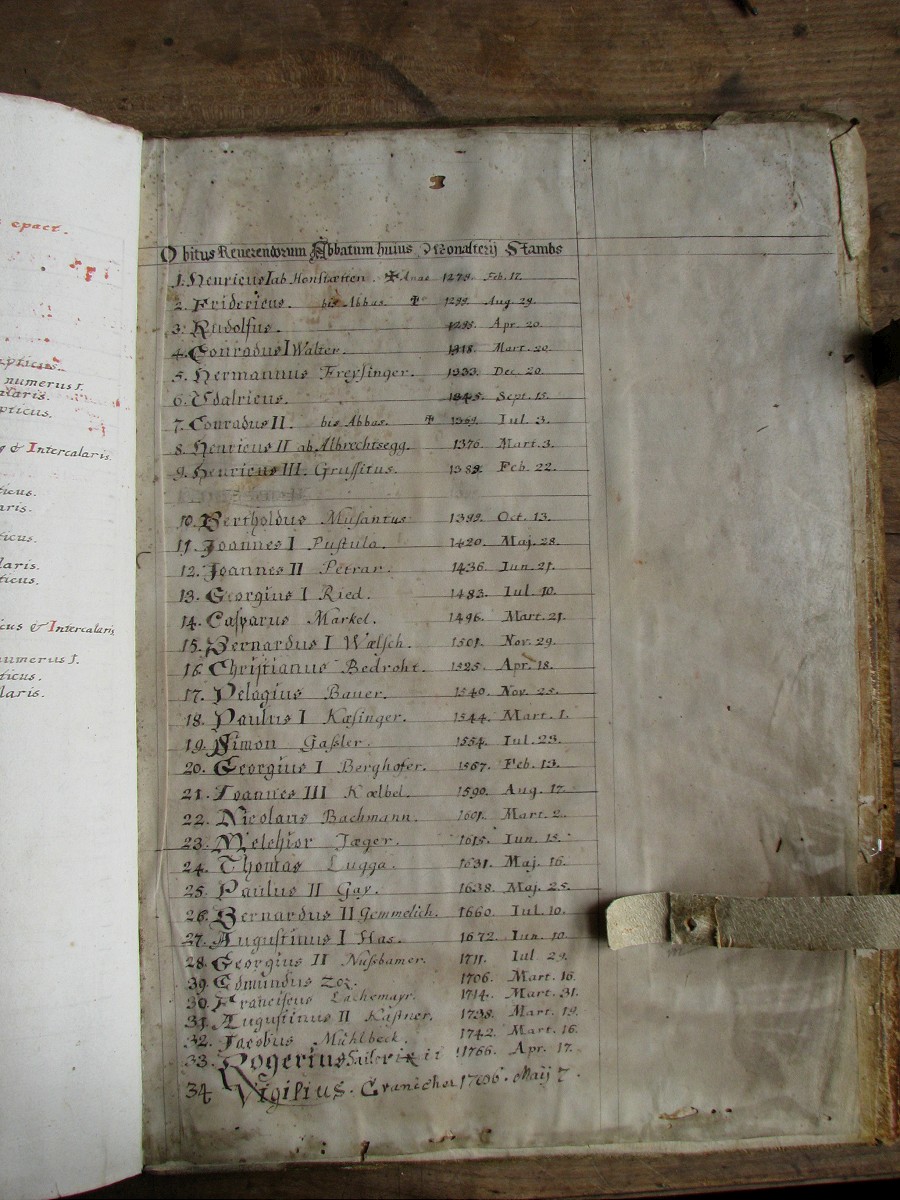 epact.
numerus I.
laris.
pticus.
& Intercalaris.
ticus.
aris.
ticus.
laris.
ticus.
cus & Intercalaris
numerus I.
ticus.
laris.
Obitus Reverendorum Abbatum huius Monasterij Stambs
1. Henricus I ab Honstætten. ✠ Anno 1279. Feb. 17.
2. Fridericus. bis Abbas. ✠ 1299. Aug. 29.
3. Rudolfus. 1295. Apr. 20.
4. Conradus I Walter. 1318. Mart. 20.
5. Hermannus Freysinger. 1333. Dec. 20.
6. Vdalricus. 1345. Sept. 15.
7. Conradus II. bis Abbas. ✠ 1369. Iul. 3.
8. Henricus II ab Albrechtsegg. 1376. Mart. 3.
9. Henricus III. Grussitus. 1388. Feb. 22.
10. Bertholdus Musantus 1399. Oct. 13.
11. Joannes I Pustula. 1420. Maj. 28.
12. Joannes II Petrar. 1436. Iun. 21.
13. Georgius I Ried. 1483. Iul. 10.
14. Casparus Märkel. 1496. Mart. 21.
15. Bernardus I Wælsch. 1501. Nov. 29.
16. Christianus Bedroht. 1525. Apr. 18.
17. Pelagius Bauer. 1540. Nov. 25.
18. Paulus I Kæsinger. 1544. Mart. 1.
19. Simon Gassler. 1554. Iul. 23.
20. Georgius I Berghofer. 1567. Feb. 13.
21. Joannes III Kælbel. 1590. Aug. 17.
22. Nicolaus Bachmann. 1601. Mart. 2.
23. Melchior Jæger. 1615. Iun. 15.
24. Thomas Lugga. 1631. Maj. 16.
25. Paulus II Gay. 1638. Maj. 25.
26. Bernardus II Gemmelich. 1660. Iul. 10.
27. Augustinus I Has. 1672. Iun. 10.
28. Georgius II Nussbamer. 1711. Iul. 29.
39. Edmundus Zoz. 1706. Mart. 16.
30. Franciscus Lachemayr. 1714. Mart. 31.
31. Augustinus II Kastner. 1738. Mart. 19.
32. Jacobus Mühlbeck. 1742. Mart. 16.
33. Rogerius Sailer 1766. Apr. 17.
34 Vigilius. Maij 7.